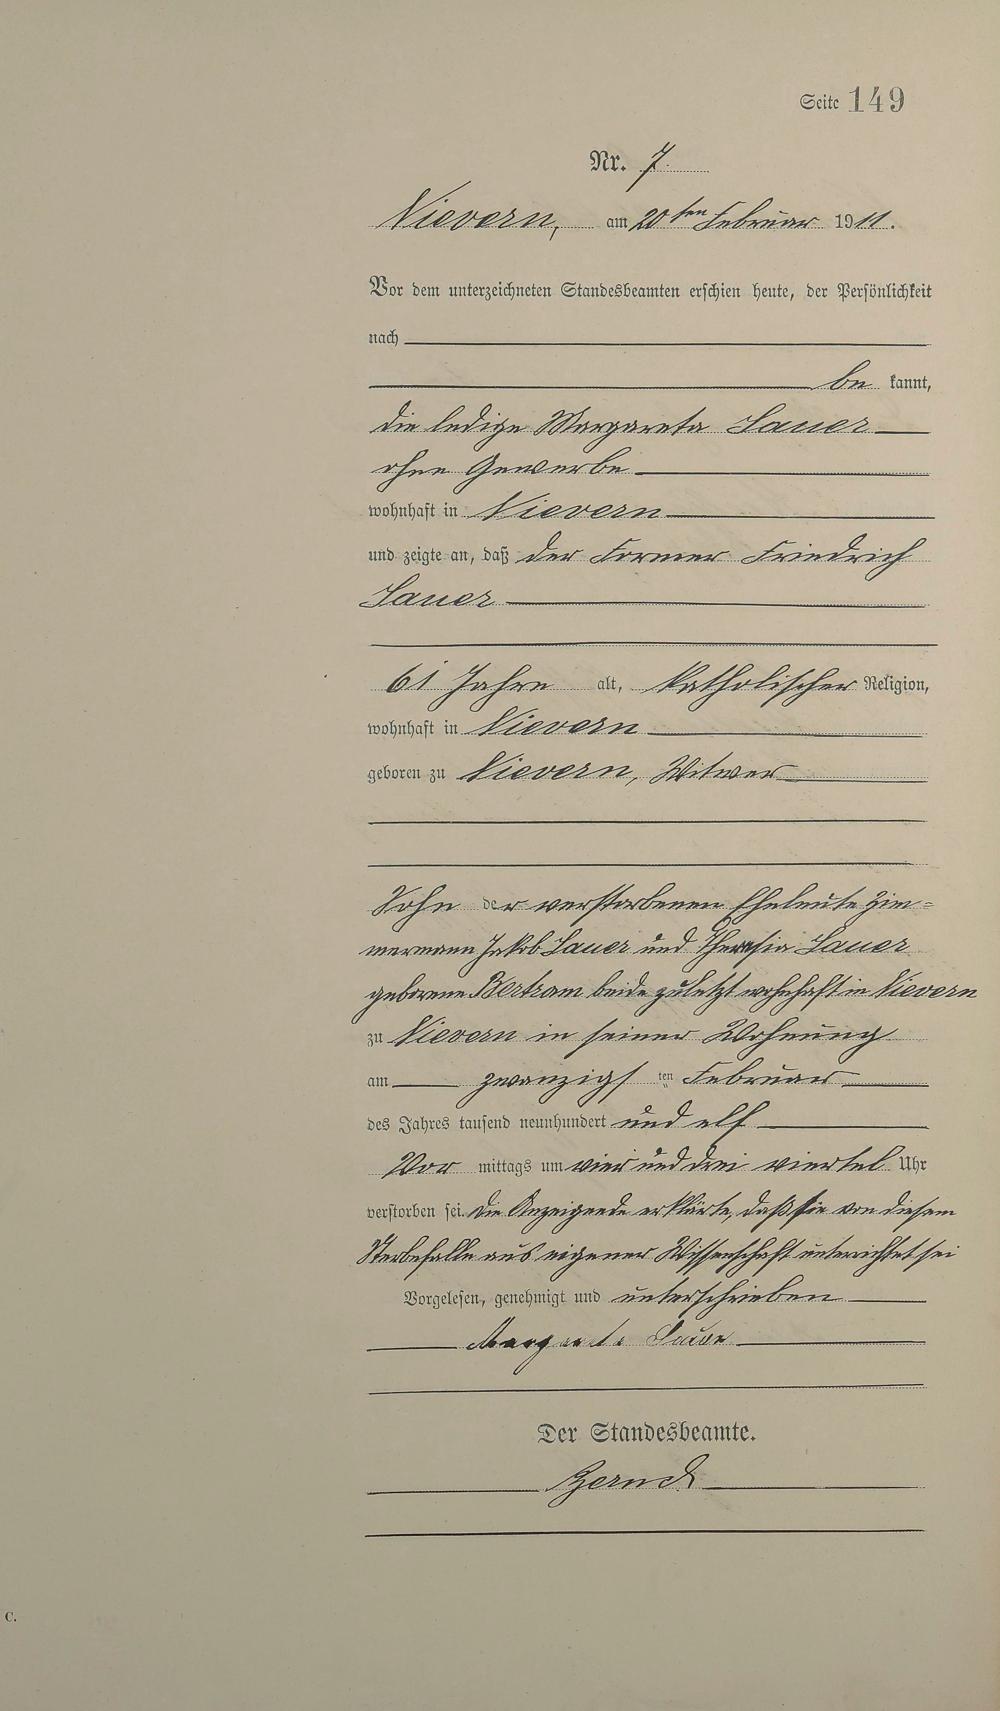 Seite 149
Nr. 7
Nievern, am 20ten Februar 1911.
Vor dem unterzeichneten Standesbeamten erschien heute, der Persönlichkeit
nach
be kannt,
die ledige Margareta Sauer
ohne Gewerbe
wohnhaft in Nievern
und zeigte an, daß der Former Friedrich
Sauer
61 Jahre alt, katholischer Religion,
wohnhaft in Nievern
geboren zu Nievern, Witwer
Sohn der verstorbenen Eheleute Zim=
mermann Jakob Sauer und Theresia Sauer
geborene Bertram beide zuletzt wohnhaft in Nievern
zu Nievern in seiner Wohnung
am zwanzigsten Februar
des Jahres tausend neunhundert und elf
Vor mittags um vier und drei viertel Uhr
verstorben sei. Die Anzeigende erklärte, daß sie von diesem
Sterbefalle aus eigener Wissenschaft unterrichtet sei
Vorgelesen, genehmigt und unterschrieben
Margareta Sauer
Der Standesbeamte.
C.